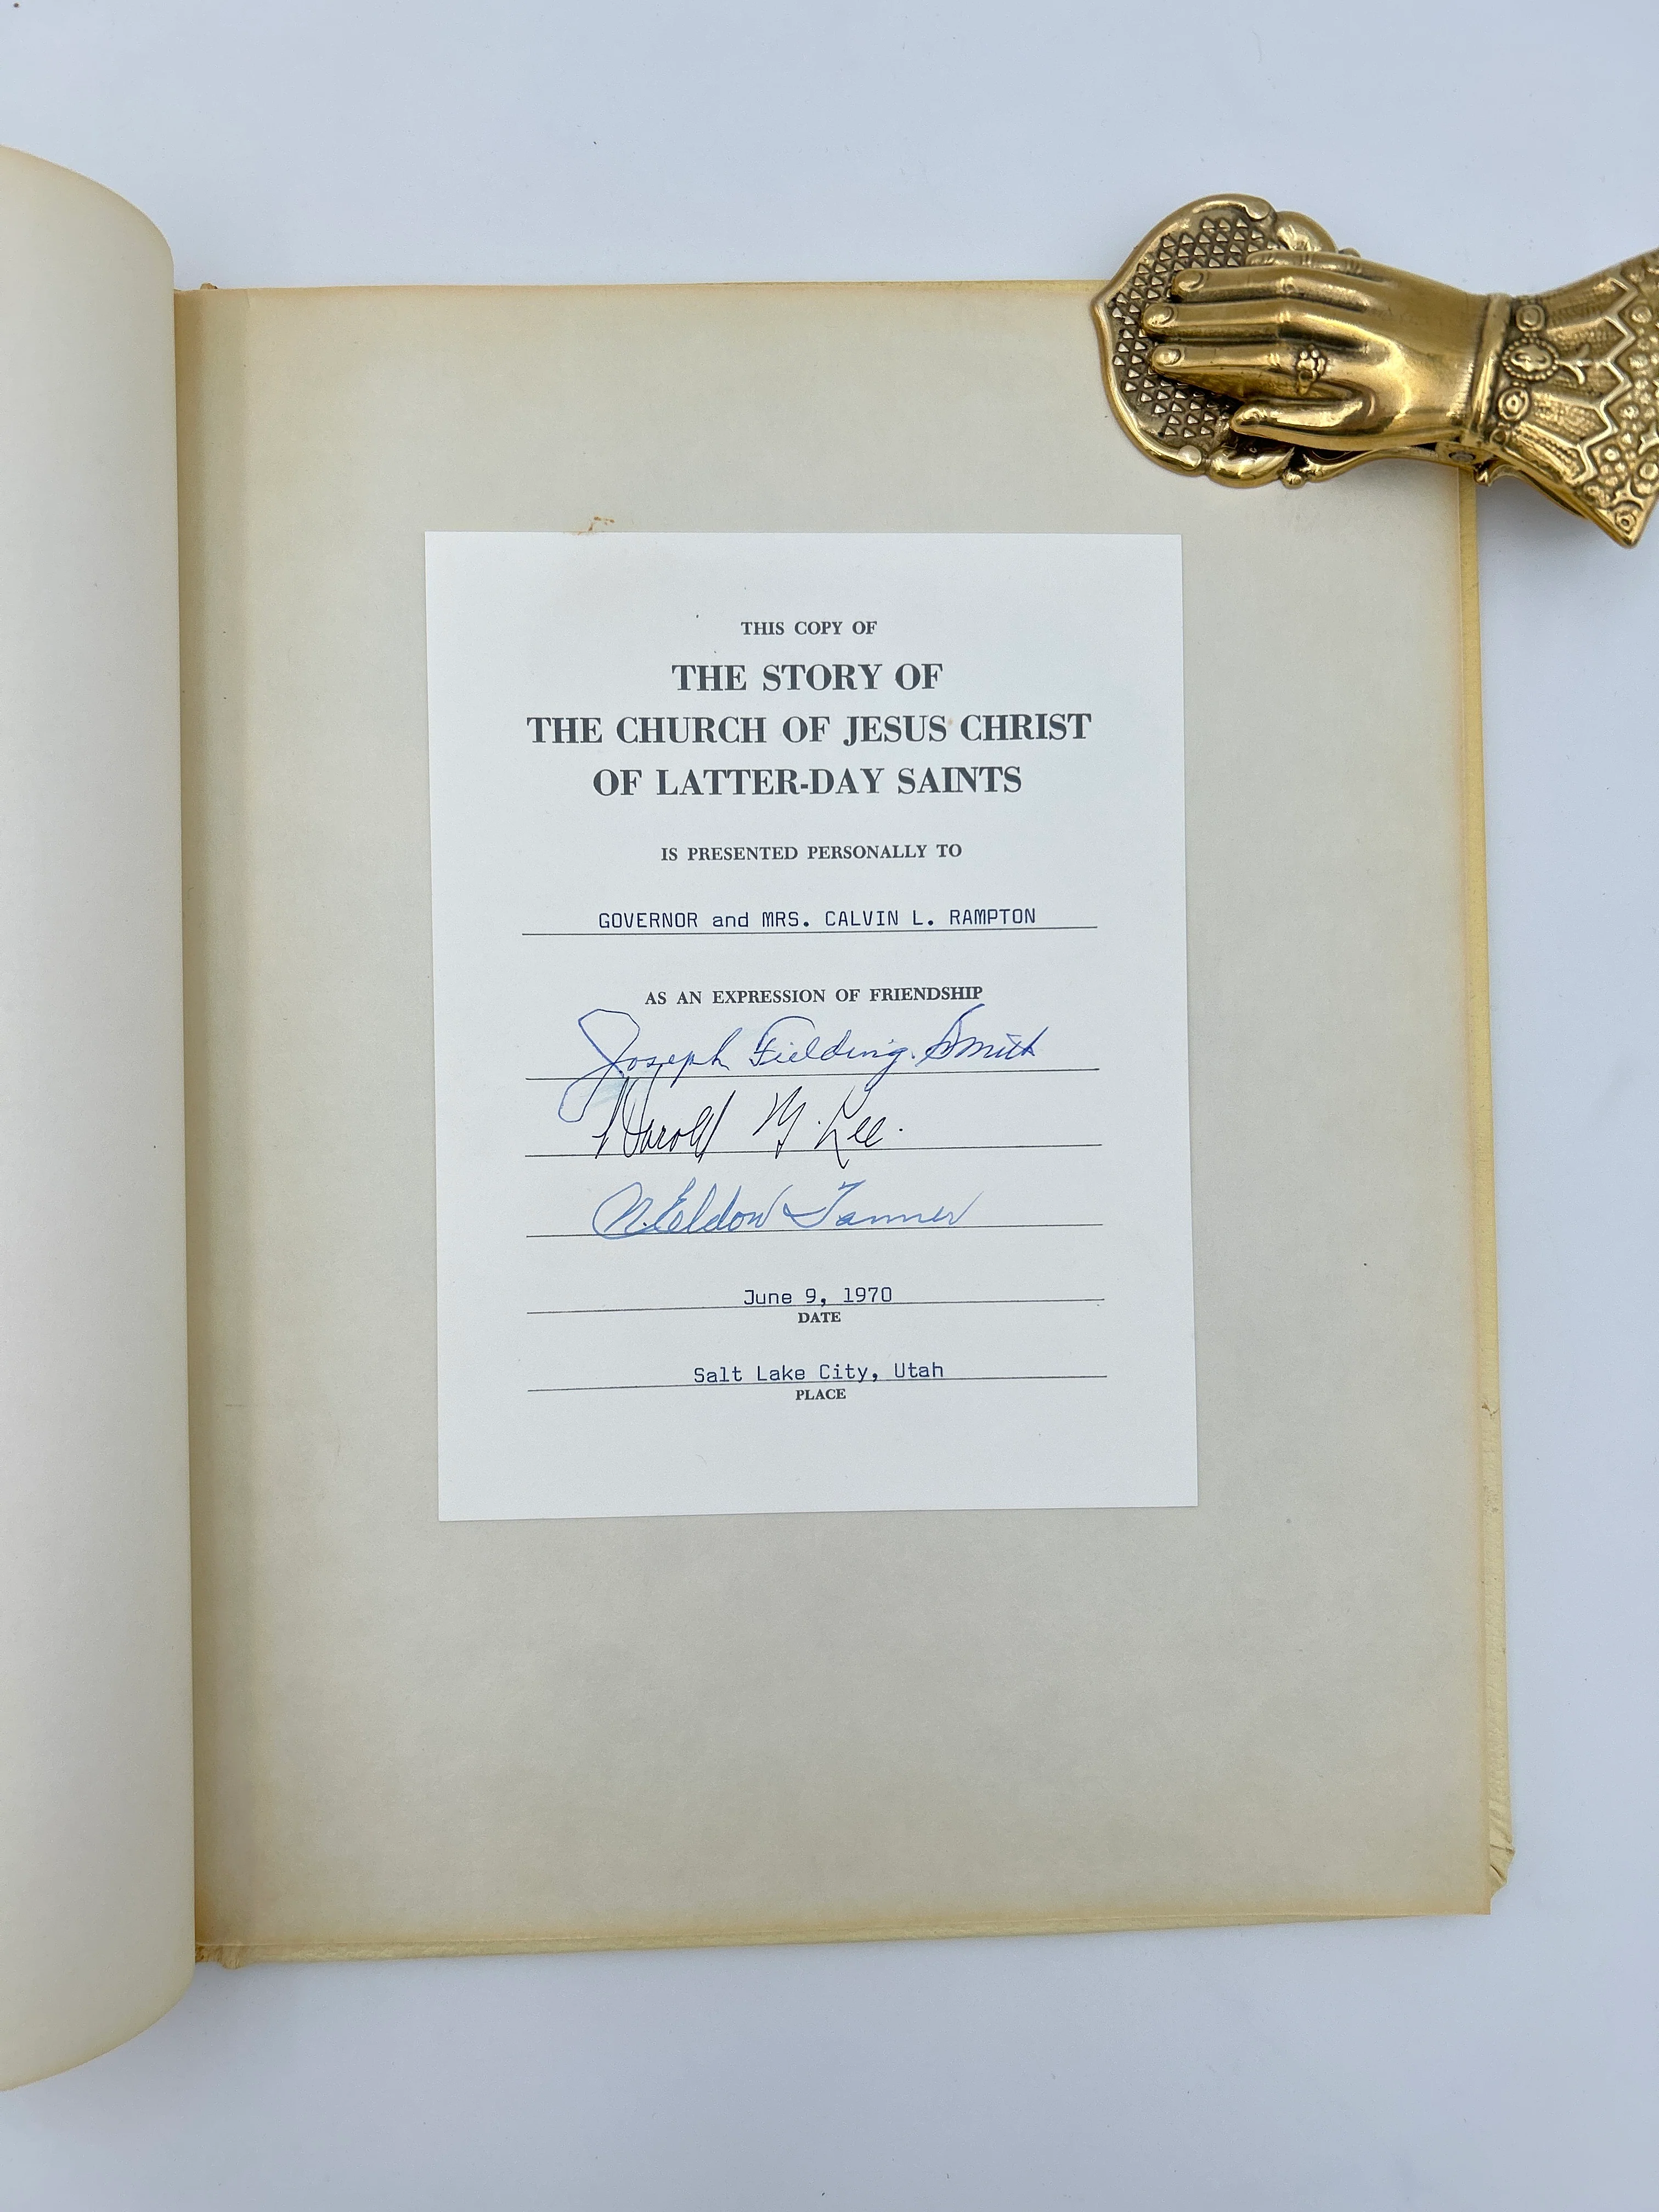 THIS COPY OF
THE STORY OF
THE CHURCH OF JESUS CHRIST
OF LATTER-DAY SAINTS
IS PRESENTED PERSONALLY TO
GOVERNOR and MRS. CALVIN L. RAMPTON
AS AN EXPRESSION OF FRIENDSHIP
Joseph Fielding Smith
Harold B. Lee
N. Eldon Tanner
June 9, 1970
DATE
Salt Lake City, Utah
PLACE